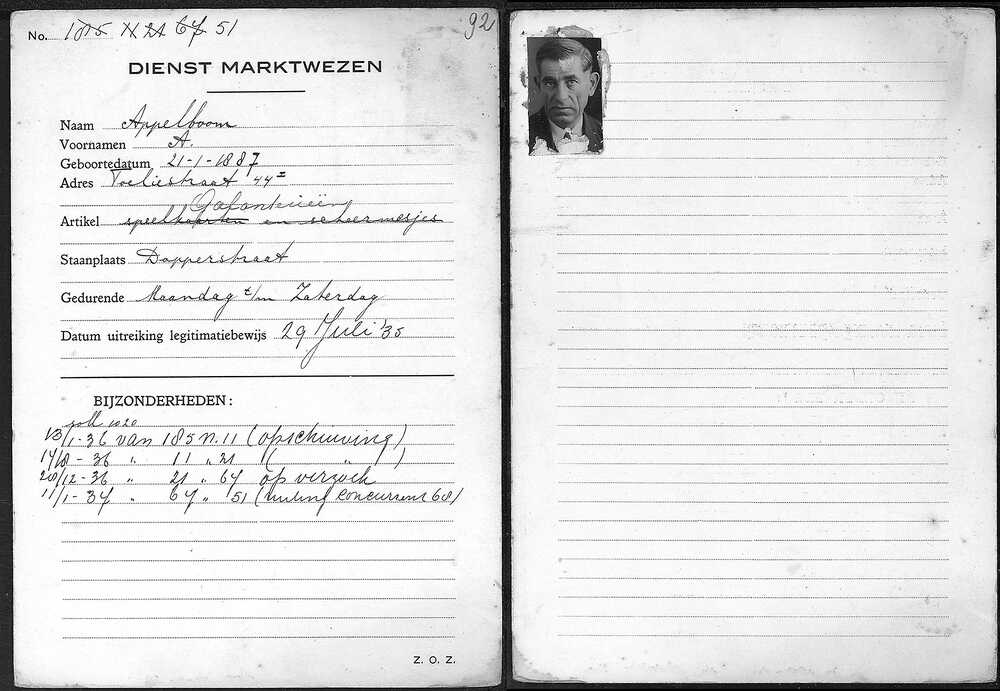 No. 185 11 21 67 51
92
DIENST MARKTWEZEN
Naam Appelboom
Voornamen A.
Geboortedatum 21-1-1887
Adres Toeliestraat 44 I
Galanterieën
Artikel speelkaarten en scheermesjes
Staanplaats Dapperstraat
Gedurende Maandag t/m Zaterdag
Datum uitreiking legitimatiebewijs 29 Juli '35
BIJZONDERHEDEN:
soll 1020
13/1-36 van 185 n. 11 (opschuiving)
14/8-36 " 11 " 21 ( " )
28/12-36 " 21 " 67 op verzoek
11/1-37 " 67 " 51 (ruiling concurrent 68)
Z. O. Z.